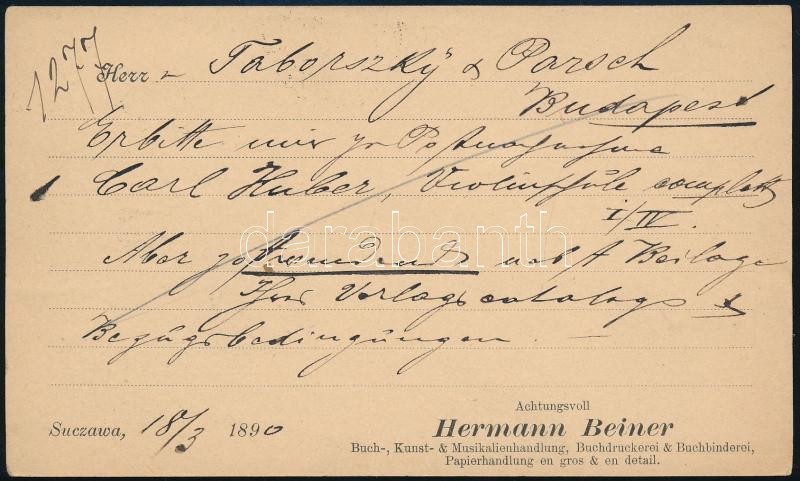 1277
Herr Taborszkÿ & Parsch
Budapest
Erbitte mir pr Postnachnahme
1 Carl Huber, Violinschule complett
I/IV.
Aber nebst Beilage
Ihres Verlagscatalogs &
Bezugsbedingungen.
darabanth
Suczawa, 18/3 1890
Achtungsvoll
Hermann Beiner
Buch-, Kunst- & Musikalienhandlung, Buchdruckerei & Buchbinderei,
Papierhandlung en gros & en detail.